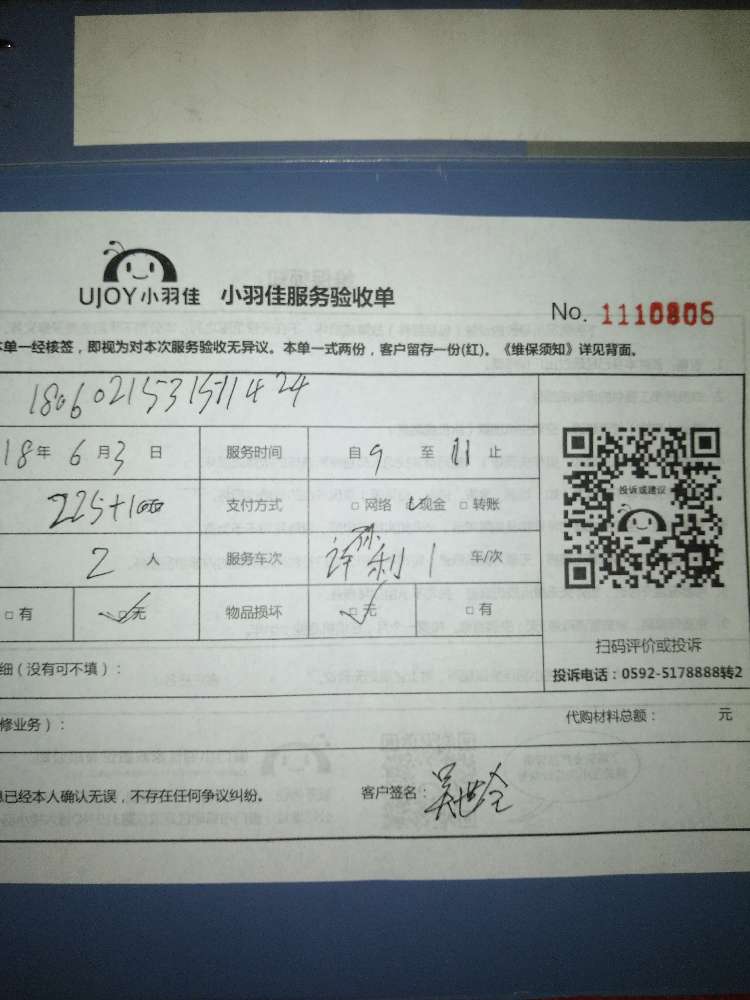 UJOY小羽佳 小羽佳服务验收单
No. 1110806
本单一经核签，即视为对本次服务验收无异议。本单一式两份，客户留存一份(红)。《维保须知》详见背面。
18年 6月3日 服务时间 自9至11止
225+100 支付方式 □网络 □现金 □转账
2人 服务车次 1 车/次
□有 □无 物品损坏 □无 □有
投诉或建议
扫码评价或投诉
投诉电话：0592-5178888转2
细（没有可不填）：
修业务）：
代购材料总额： 元
息已经本人确认无误，不存在任何争议纠纷。 客户签名：